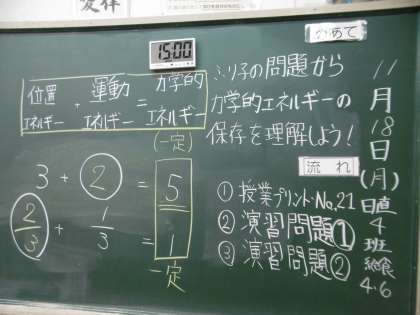 15:00
めあて
ふり子の問題から
力学的エネルギーの
保存を理解しよう!
11月18日(月)
日直
4班
給食
4・6
位置エネルギー + 運動エネルギー = 力学的エネルギー
(一定)
3 + 2 = 5
2/3 + 1/3 = 1
一定
流れ
① 授業プリントNo.21
② 演習問題①
③ 演習問題②